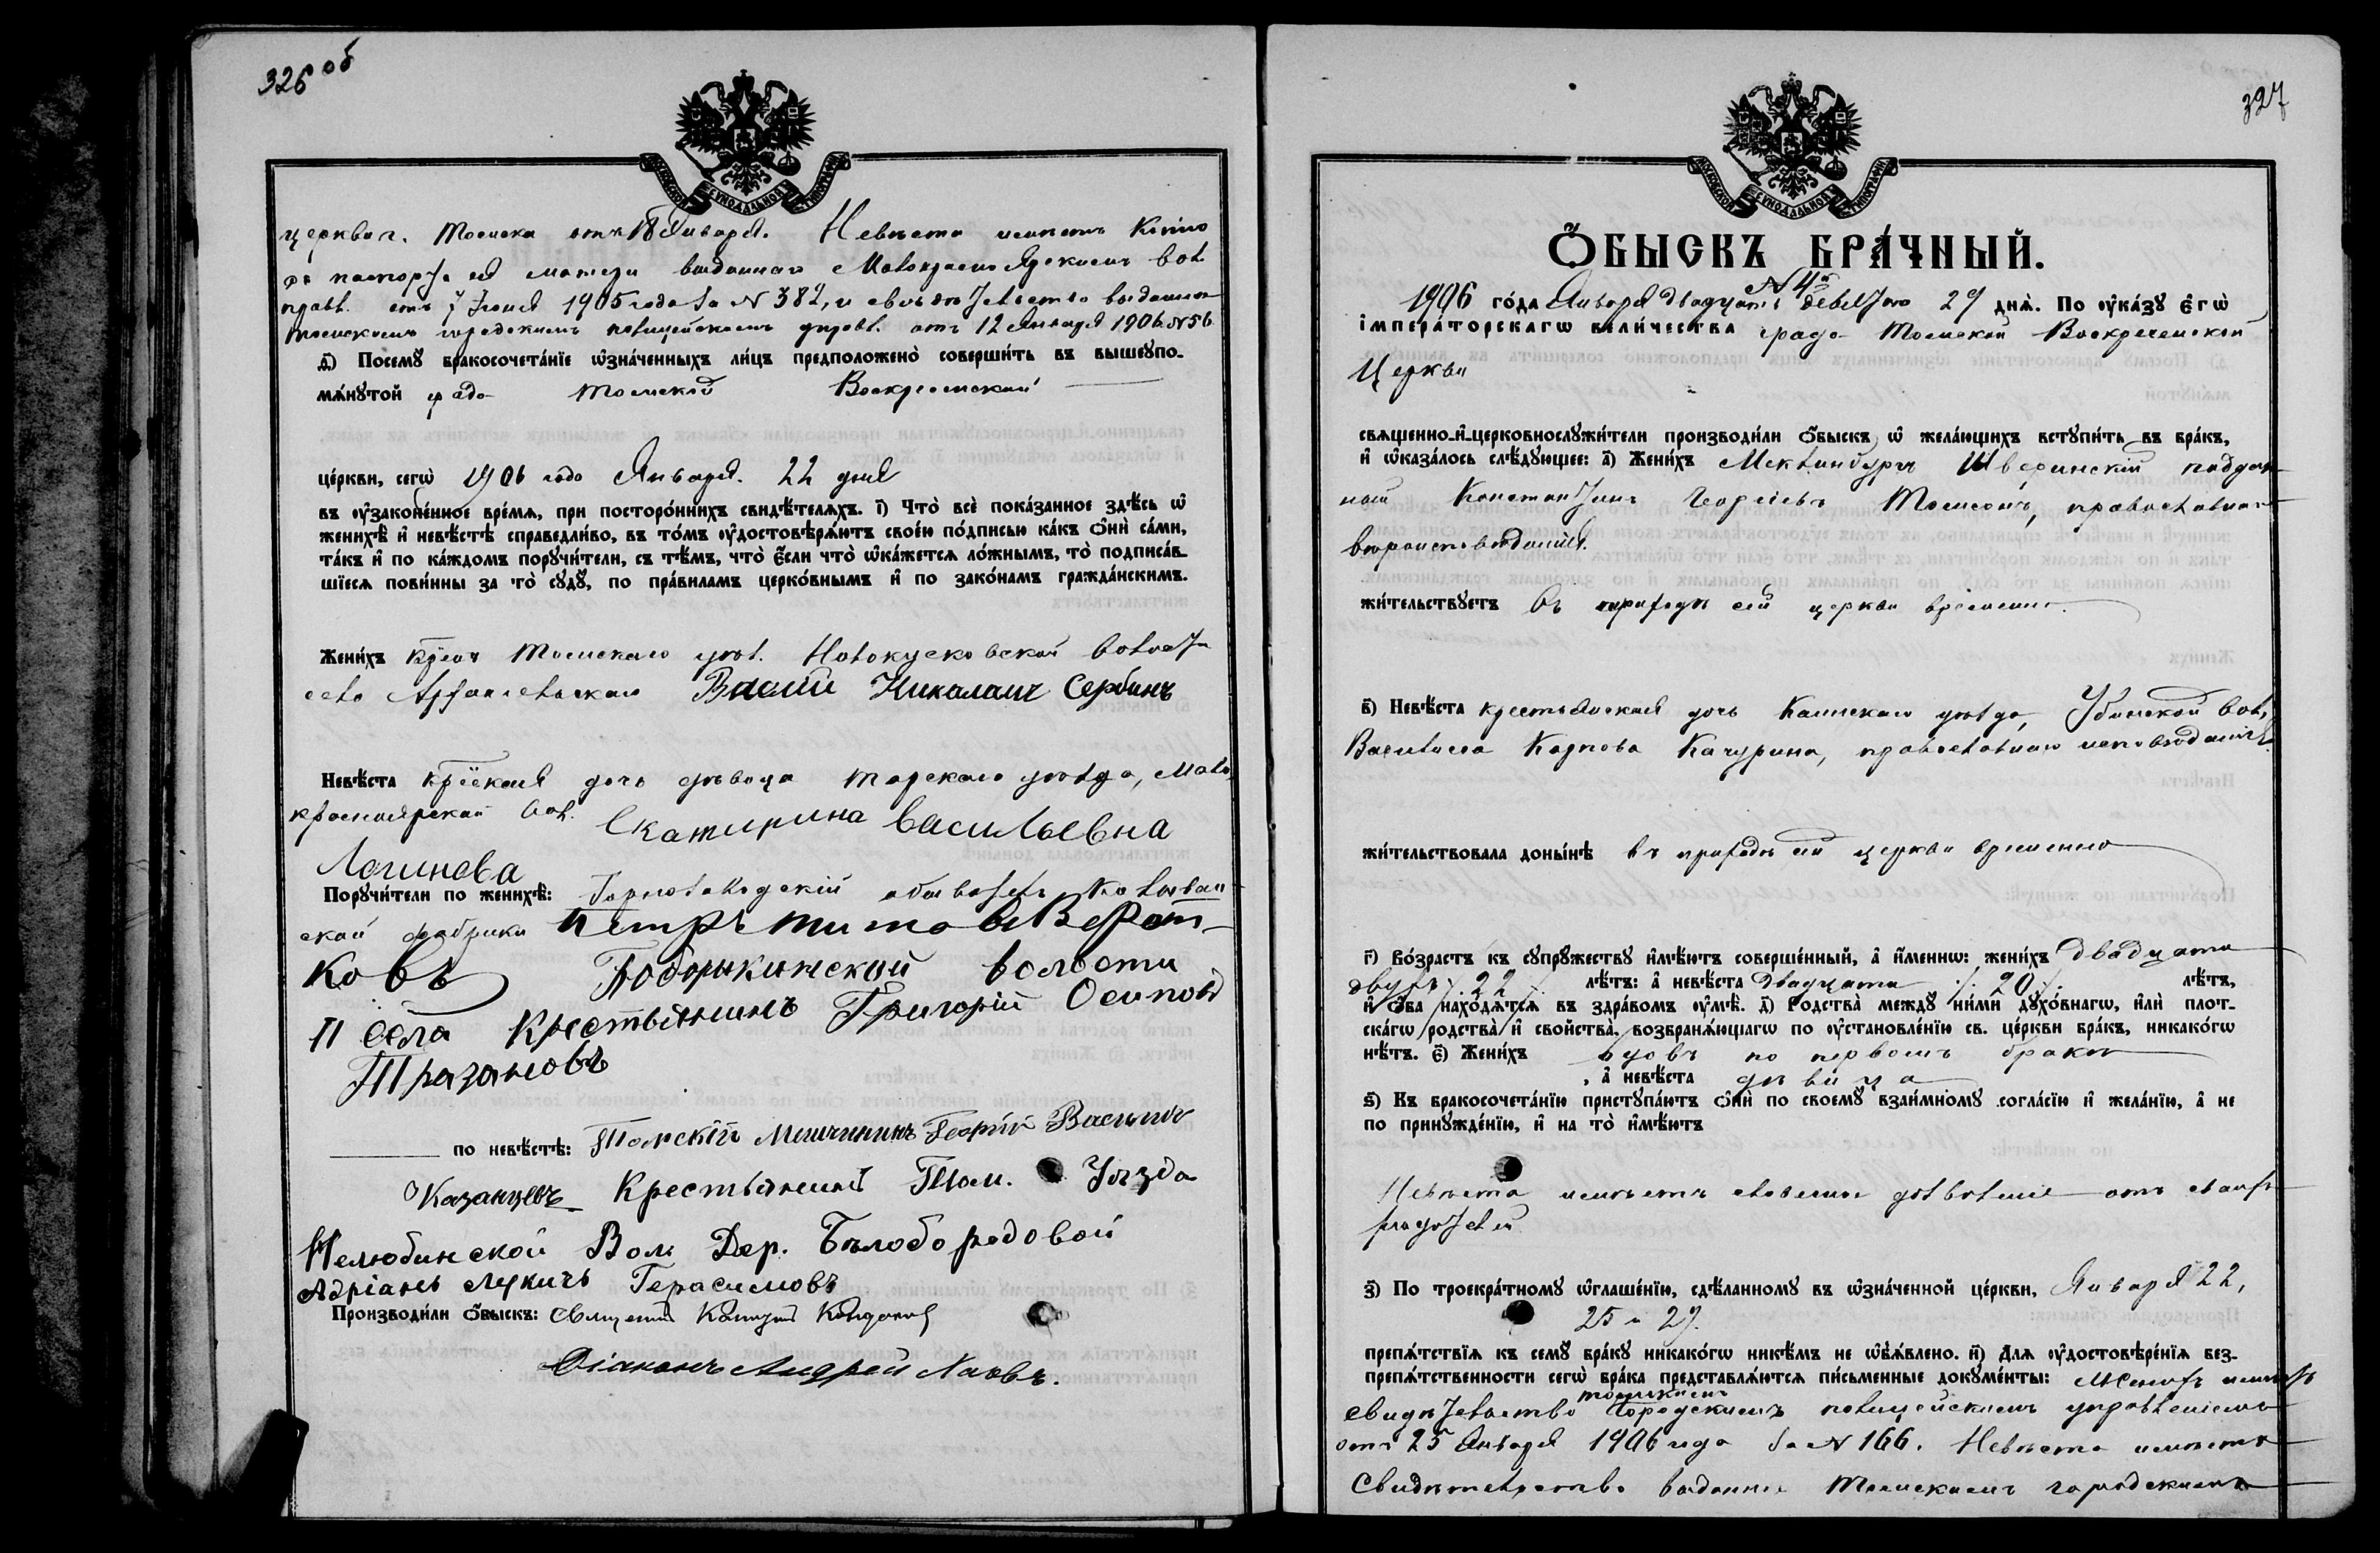 326 об
МОСКОВСКОЙ СѴНОДАЛЬНОЙ ТИПОГРАФІИ
церкви г. Томска отъ 18 Января. Невѣста имѣетъ
паспортѣ ея матери выданнаго Малокрасноярскимъ вол.
правл. отъ 7 Іюня 1905 года за № 382, и свидѣтельство выданное
томскимъ городскимъ полицейскимъ управл. отъ 12 января 1906 № 56
д҃) Посемꙋ̀ бракосочета́нїе ѡ҆зна́ченныхъ ли́цъ предположено̀ соверши́ть въ вышеꙋпо-
мѧ́нꙋтой градо- Томской Воскресенской
це́ркви, сегѡ̀ 1906 года Января. 22 дня
въ ᲂу҆зако́ненное вре́мѧ, при посторо́ннихъ свидѣ́телѧхъ. і҃) Что̀ всѐ пока́занное здѣ́сь ѡ҆
женихѣ̀ и҆ невѣ́стѣ справедли́во, въ то́мъ ᲂу҆достовѣрѧ́ютъ свое́ю по́дписью ка́къ ѻ҆нѝ са́ми,
та́къ и҆ по ка́ждомъ порꙋчи́тели, съ тѣ́мъ, что̀ є҆́сли что̀ ѡ҆ка́жетсѧ ло́жнымъ, то̀ подписа́в-
шїесѧ пови́нны за то̀ сꙋдꙋ̀, по пра́виламъ церко́внымъ и҆ по зако́намъ гражда́нскимъ.
Жени́хъ кр̃ен. Томскаго уѣз. Новокусковской волости
села Архангельскаго Васлій Николаич Сербинъ
Невѣ́ста кр̃ская дочь дѣвица Тарскаго уѣзда, Мало-
красноярской вол. Екатирина Васильевна
Логинова
Порꙋчи́тели по женихѣ̀: Горнозаводскій обыватель Колыван-
ской фабрики Петръ Титовъ
ковъ волости
села Крестьянинъ Григорій Осиповъ
по невѣ́стѣ: Томскій Мешчининъ Георгій Васильич
Казанцевъ Крестьянинъ Том. Уѣзда
Нелюбинской Вол. Дер. Бѣлобородовой
Адріанъ Лукичъ Герасимовъ
Производи́ли ѻ҆́быскъ: Священникъ
Діаконъ Андрей
327
МОСКОВСКОЙ СѴНОДАЛЬНОЙ ТИПОГРАФІИ
Ѻ҆́БЫСКЪ БРА́ЧНЫЙ.
№ 4й
1906 го́да Января двадцать девятого 29 днѧ̀. По ᲂу҆ка́зꙋ є҆гѡ̀
і҆мпера́торскагѡ вели́чества градо- Томской Воскресенской
Церкви
свѧще́нно-и҆-церковнослꙋжи́тели производи́ли ѻ҆́быскъ ѡ҆ жела́ющихъ встꙋпи́ть въ бра́къ,
и҆ ѡ҆каза́лось слѣ́дꙋющее: а҃) Жени́хъ Мекленбургъ Шверинскій поддан-
ный Константинъ Георгіевъ Томсонъ, православнаго
вѣроисповѣданія.
жи́тельствꙋетъ въ приходѣ сей церкви временно.
в҃) Невѣ́ста крестьянская дочь Каинскаго уѣзда, Убинской вол.
Василиса Карпова Качурина, православнаго исповѣданія
жи́тельствовала доны́нѣ въ приходѣ сей церкви временно
г҃) Во́зрастъ къ сꙋпрꙋ́жествꙋ и҆мѣ́ютъ соверше́нный, а҆ и҆́меннѡ: жени́хъ двадцати
двухъ 22 лѣ́тъ: а҆ невѣ́ста двадцати 20 лѣ́тъ,
и҆ ѻ҆́ба нахо́дѧтсѧ въ здра́вомъ ᲂу҆мѣ̀. д҃) Родства̀ междꙋ̀ ни́ми дꙋхо́внагѡ, и҆лѝ пло́т-
скагѡ родства̀ и҆ свойства̀, возбранѧ́ющагѡ по ᲂу҆становле́нїю св. це́ркви бра́къ, никако́гѡ
нѣ́тъ. є҃) Жени́хъ вдовъ по первомъ бракѣ
, а҆ невѣ́ста дѣвица
ѕ҃) Къ бракосочета́нїю пристꙋпа́ютъ ѻ҆нѝ по своемꙋ̀ взаи́мномꙋ согла́сїю и҆ жела́нїю, а҆ не
по принꙋжде́нїю, и҆ на то̀ и҆мѣ́ютъ
Невѣста имѣетъ словесное дозволеніе отъ своихъ
родителей
з҃) По троекра́тномꙋ ѡ҆глаше́нїю, сдѣ́ланномꙋ въ ѡ҆зна́ченной це́ркви, Января 22,
25 и 29.
препѧ́тствїѧ къ семꙋ̀ бра́кꙋ никако́гѡ никѣ́мъ не ѡ҆б̾ѧ́влено. и҃) Для ᲂу҆достовѣре́нїѧ без-
препѧ́тственности сегѡ̀ бра́ка представлѧ́ютсѧ пи́сьменные докꙋме́нты: Женихъ имѣетъ
томскимъ
свидѣтельство Городскимъ полицейскимъ управленіемъ
отъ 25 Января 1906 года за № 166. Невѣста имѣетъ
свидѣтельство выданное Томскимъ городскимъ